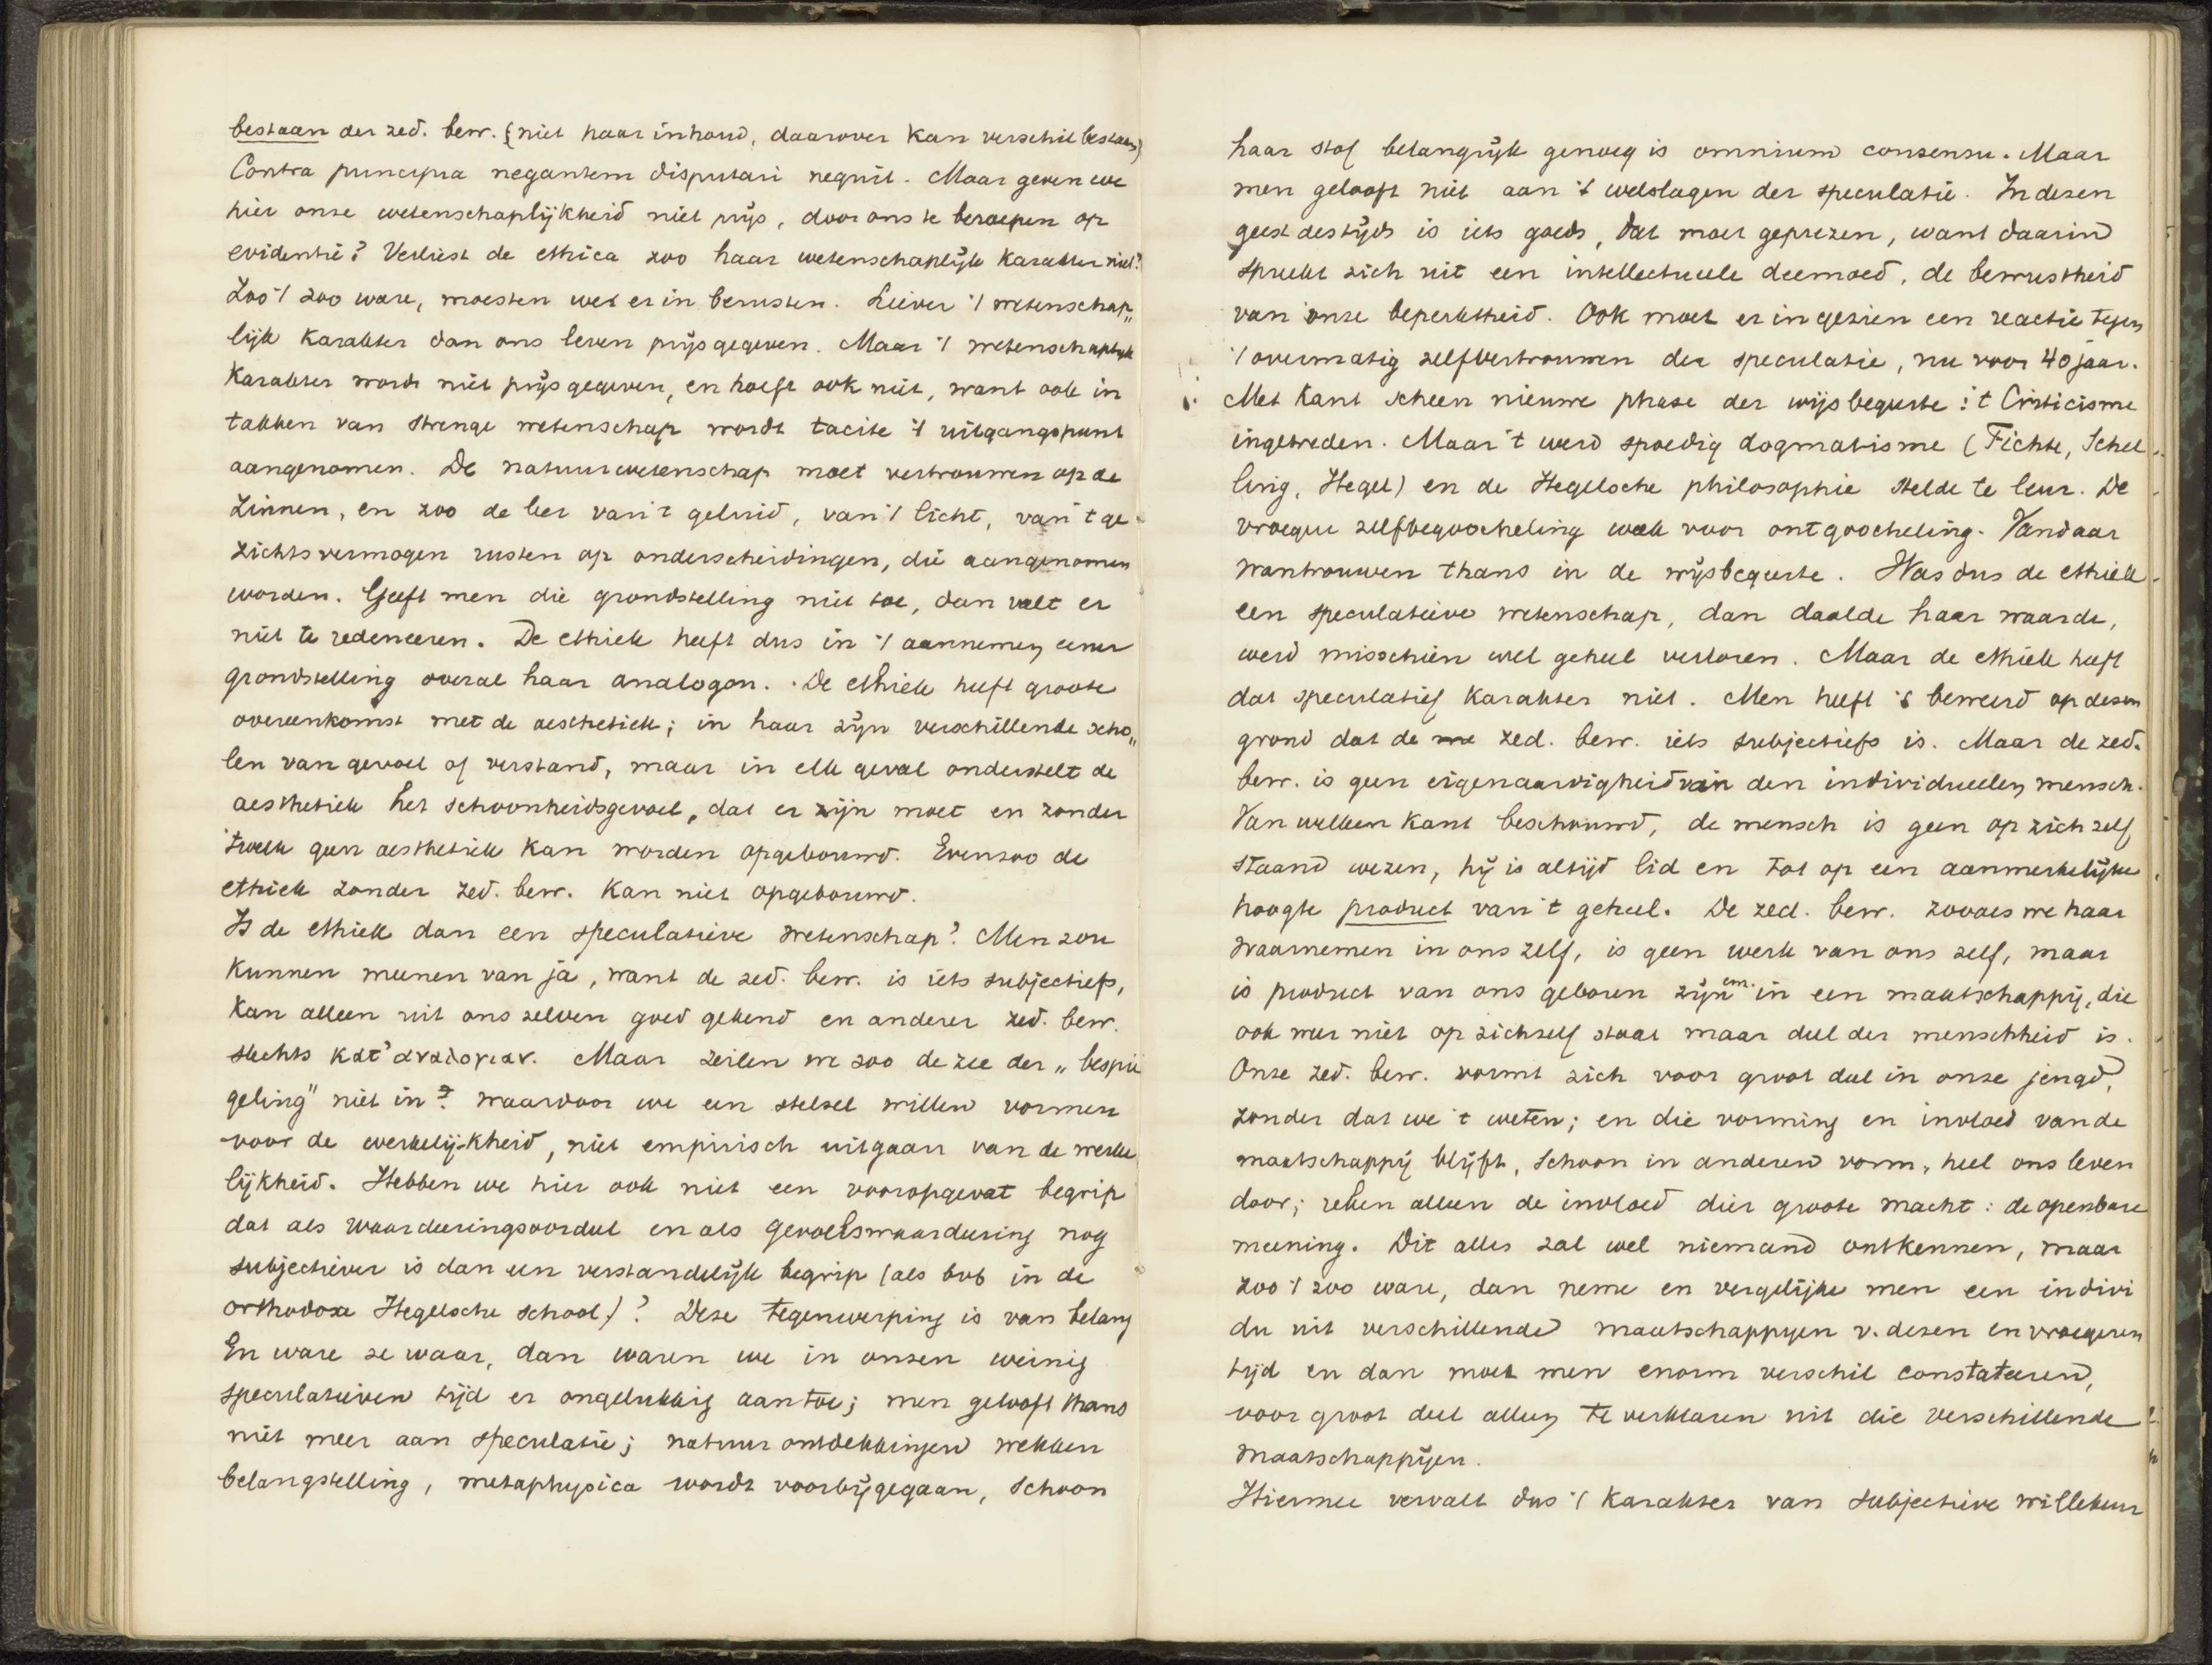 bestaan der zed. bew. (niet haar inhoud, daarover kan verschil bestaan)
Contra principia negantem disputari nequit. Maar geven we
hier onze wetenschaplijkheid niet prijs, door ons te beroepen op
evidentie? Verliest de ethica zoo haar wetenschaplijk karakter niet?
Zoo 't zoo ware, moesten we er in berusten. Liever 't wetenschap„
lijk karakter dan ons leven prijsgegeven. Maar 't wetenschaplijk
karakter wordt niet prijsgegeven, en hoeft ook niet, want ook in
takken van strenge wetenschap wordt tacite 't uitgangspunt
aangenomen. De natuurwetenschap moet vertrouwen op de
zinnen, en zoo de leer van 't geluid, van 't licht, van 't ge
zichtsvermogen rusten op onderscheidingen, die aangenomen
worden. Geeft men die grondstelling niet toe, dan valt er
niet te redeneeren. De ethiek heeft dus in 't aannemen eener
grondstelling overal haar analogon. De ethiek heeft groote
overeenkomst met de aesthetiek; in haar zijn verschillende scho„
len van gevoel of verstand, maar in elk geval onderstelt de
aesthetiek het schoonheidsgevoel, dat er zijn moet en zonder
'twelk geen aesthetiek kan worden opgebouwd. Evenzoo de
ethiek zonder zed. bew. kan niet opgebouwd.
Is de ethiek dan een speculatieve wetenschap? Men zou
kunnen meenen van ja, want de zed. bew. is iets subjectiefs,
kan alleen uit ons zelven goed gekend en anderer zed. bew.
slechts κατ' αναλογιαν. Maar zeilen we zoo de zee der „bespie
geling" niet in? waardoor we een stelsel willen vormen
voor de werkelijkheid, niet empirisch uitgaan van de werke
lijkheid. Hebben we hier ook niet een vooropgevat begrip
dat als waardeeringsoordeel en als gevoelswaardeering nog
subjectiever is dan een verstandelijk begrip (als bvb in de
orthodoxe Hegelsche school)? Deze tegenwerping is van belang
En ware ze waar, dan waren we in onzen weinig
speculatieven tijd er ongelukkig aan toe; men gelooft thans
niet meer aan speculatie; natuurontdekkingen wekken
belangstelling, metaphysica wordt voorbijgegaan, schoon
haar stof belangrijk genoeg is omnium consensu. Maar
men gelooft niet aan 't welslagen der speculatie. In dezen
geest des tijds is iets goeds, dat moet geprezen, want daarin
spreekt zich uit een intellectueele deemoed, de bewustheid
van onze beperktheid. Ook moet er in gezien een reactie tegen
't overmatig zelfvertrouwen der speculatie, nu voor 40 jaar.
Met Kant scheen nieuwe phase der wijsbegeerte: 't Criticisme
ingetreden. Maar 't werd spoedig dogmatisme (Fichte, Schel
ling, Hegel) en de Hegelsche philosophie stelde te leur. De
vroegere zelfbegoocheling week voor ontgoocheling. Vandaar
wantrouwen thans in de wijsbegeerte. Was dus de ethiek
een speculatieve wetenschap, dan daalde haar waarde,
werd misschien wel geheel verloren. Maar de ethiek heeft
dat speculatief karakter niet. Men heeft 't beweerd op dezen
grond dat de zed. bew. iets subjectiefs is. Maar de zed.
bew. is geen eigenaardigheid van den individueelen mensch.
Van welken kant beschouwd, de mensch is geen op zich zelf
staand wezen, hij is altijd lid en tot op een aanmerkelijke
hoogte product van 't geheel. De zed. bew. zooals we haar
waarnemen in ons zelf, is geen werk van ons zelf, maar
is product van ons geboren zijn enz. in een maatschappij, die
ook weer niet op zichzelf staat maar deel der menschheid is.
Onze zed. bew. vormt zich voor groot deel in onze jeugd,
zonder dat we 't weten; en die vorming en invloed van de
maatschappij blijft, schoon in anderen vorm, heel ons leven
door; reken alleen de invloed dier groote macht: de openbare
meening. Dit alles zal wel niemand ontkennen, maar
zoo 't zoo ware, dan neme en vergelijke men een indivi
du uit verschillende maatschappijen v. dezen en vroegeren
tijd en dan moet men enorm verschil constateeren,
voor groot deel alleen te verklaren uit die verschillende
maatschappijen.
Hiermee vervalt dus 't karakter van subjectieve willekeur